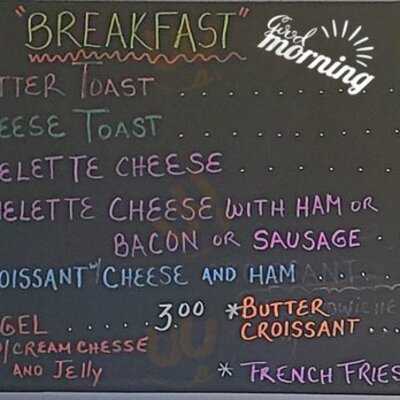 "BREAKFAST" Good morning
TTER TOAST . . . . . .
EESE TOAST . . . . . .
ELETTE CHEESE . . . . .
ELETTE CHEESE WITH HAM OR
BACON OR SAUSAGE .
OISSANT W/ CHEESE AND HAM . . . .
GEL . . . . . 3.00
/CREAM CHESSE
AND JELLY
*BUTTER
CROISSANT . . .
* FRENCH FRIES